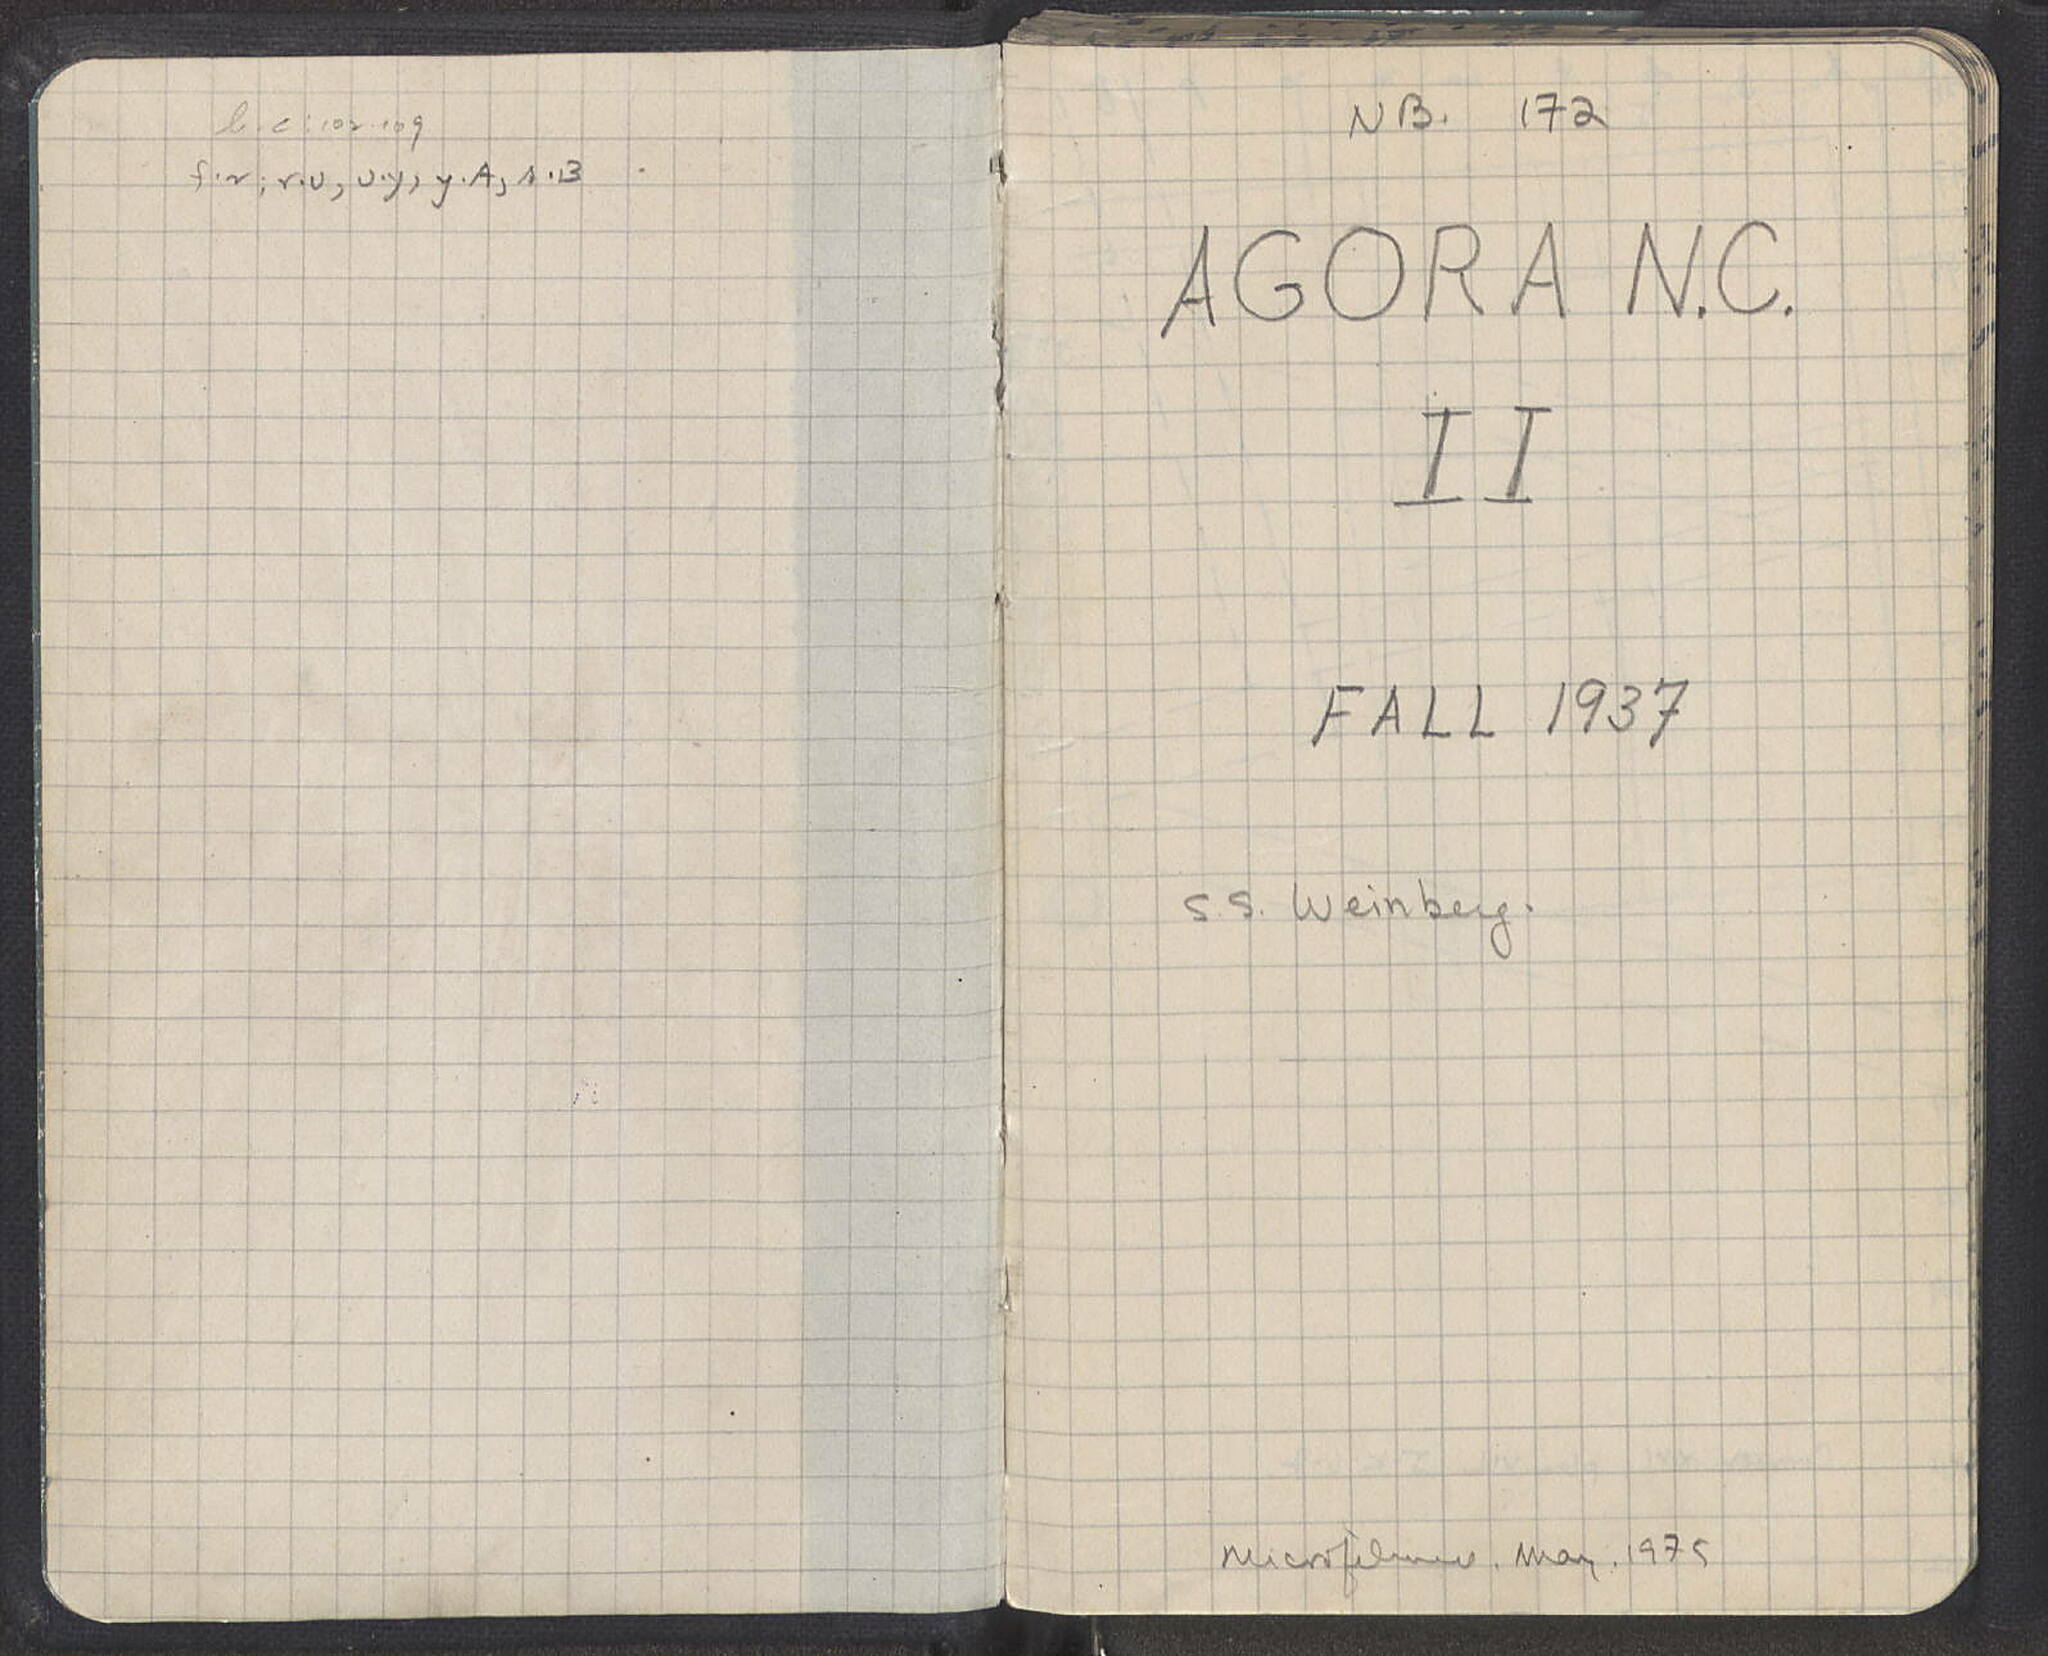 b.c: 102.109
f.r; r.u, u.y, y.A, A.B
NB. 172
AGORA N.C.
II
FALL 1937
S.S. Weinberg.
Microfilmed. May. 1975